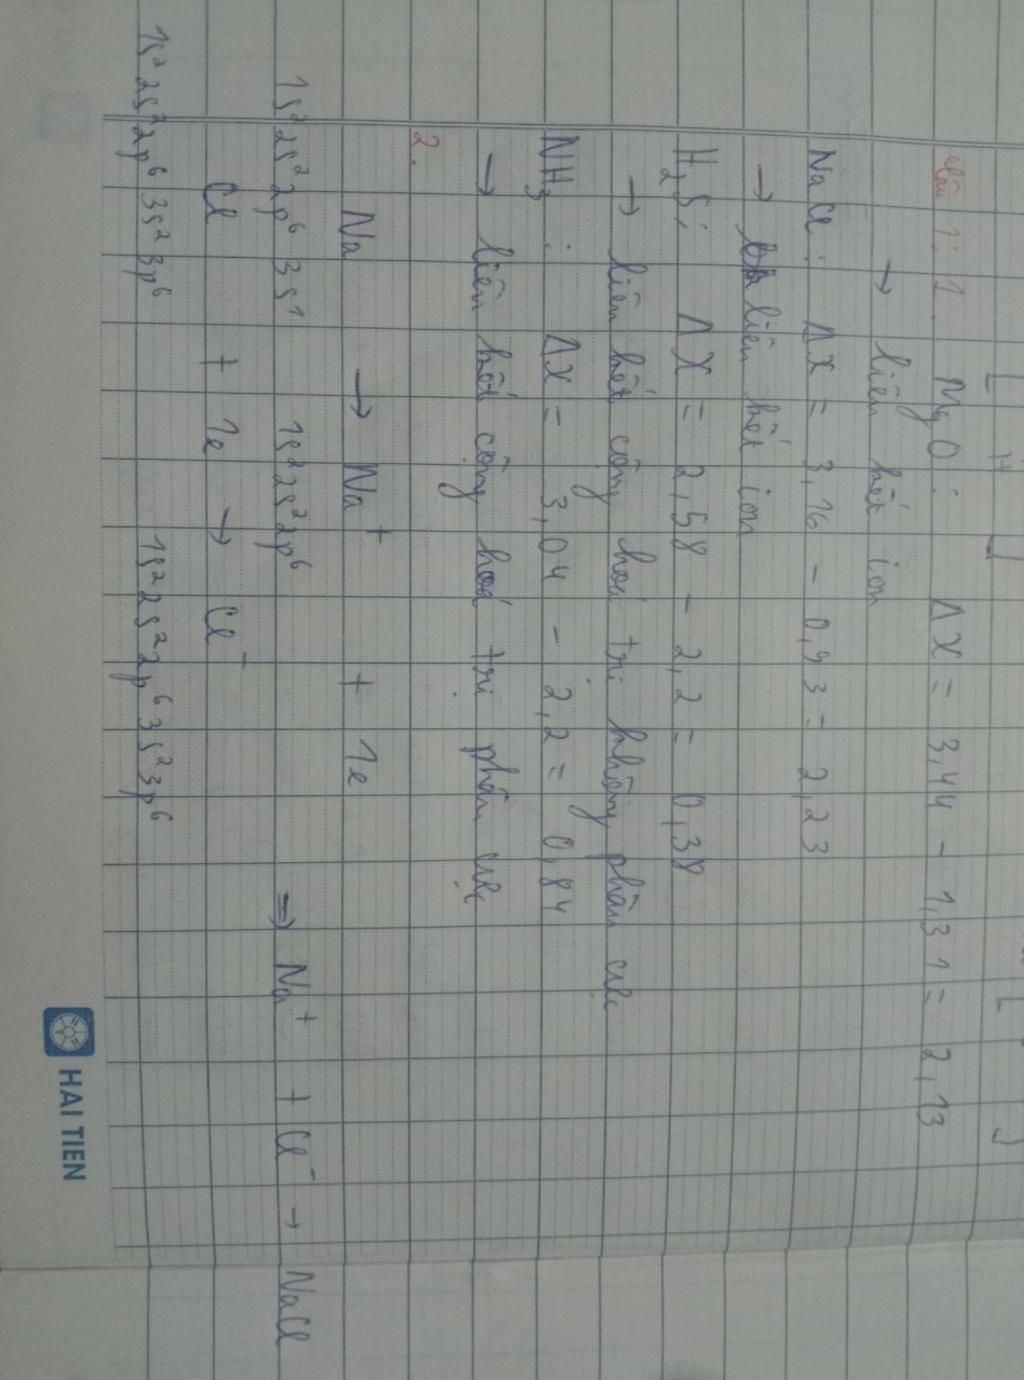 Câu 1: 1. MgO: ΔX = 3,44 - 1,31 = 2,13
→ liên kết ion
NaCl: ΔX = 3,16 - 0,93 = 2,23
→ liên kết ion
H₂S: ΔX = 2,58 - 2,2 = 0,38
→ liên kết cộng hoá trị không phân cực
NH₃: ΔX = 3,04 - 2,2 = 0,84
→ liên kết cộng hoá trị phân cực
2.
Na → Na⁺ + 1e
1s² 2s² 2p⁶ 3s¹ 1s² 2s² 2p⁶ ⇒ Na⁺ + Cl⁻ → NaCl
Cl + 1e → Cl⁻
1s² 2s² 2p⁶ 3s² 3p⁶ 1s² 2s² 2p⁶ 3s² 3p⁶
HAI TIEN